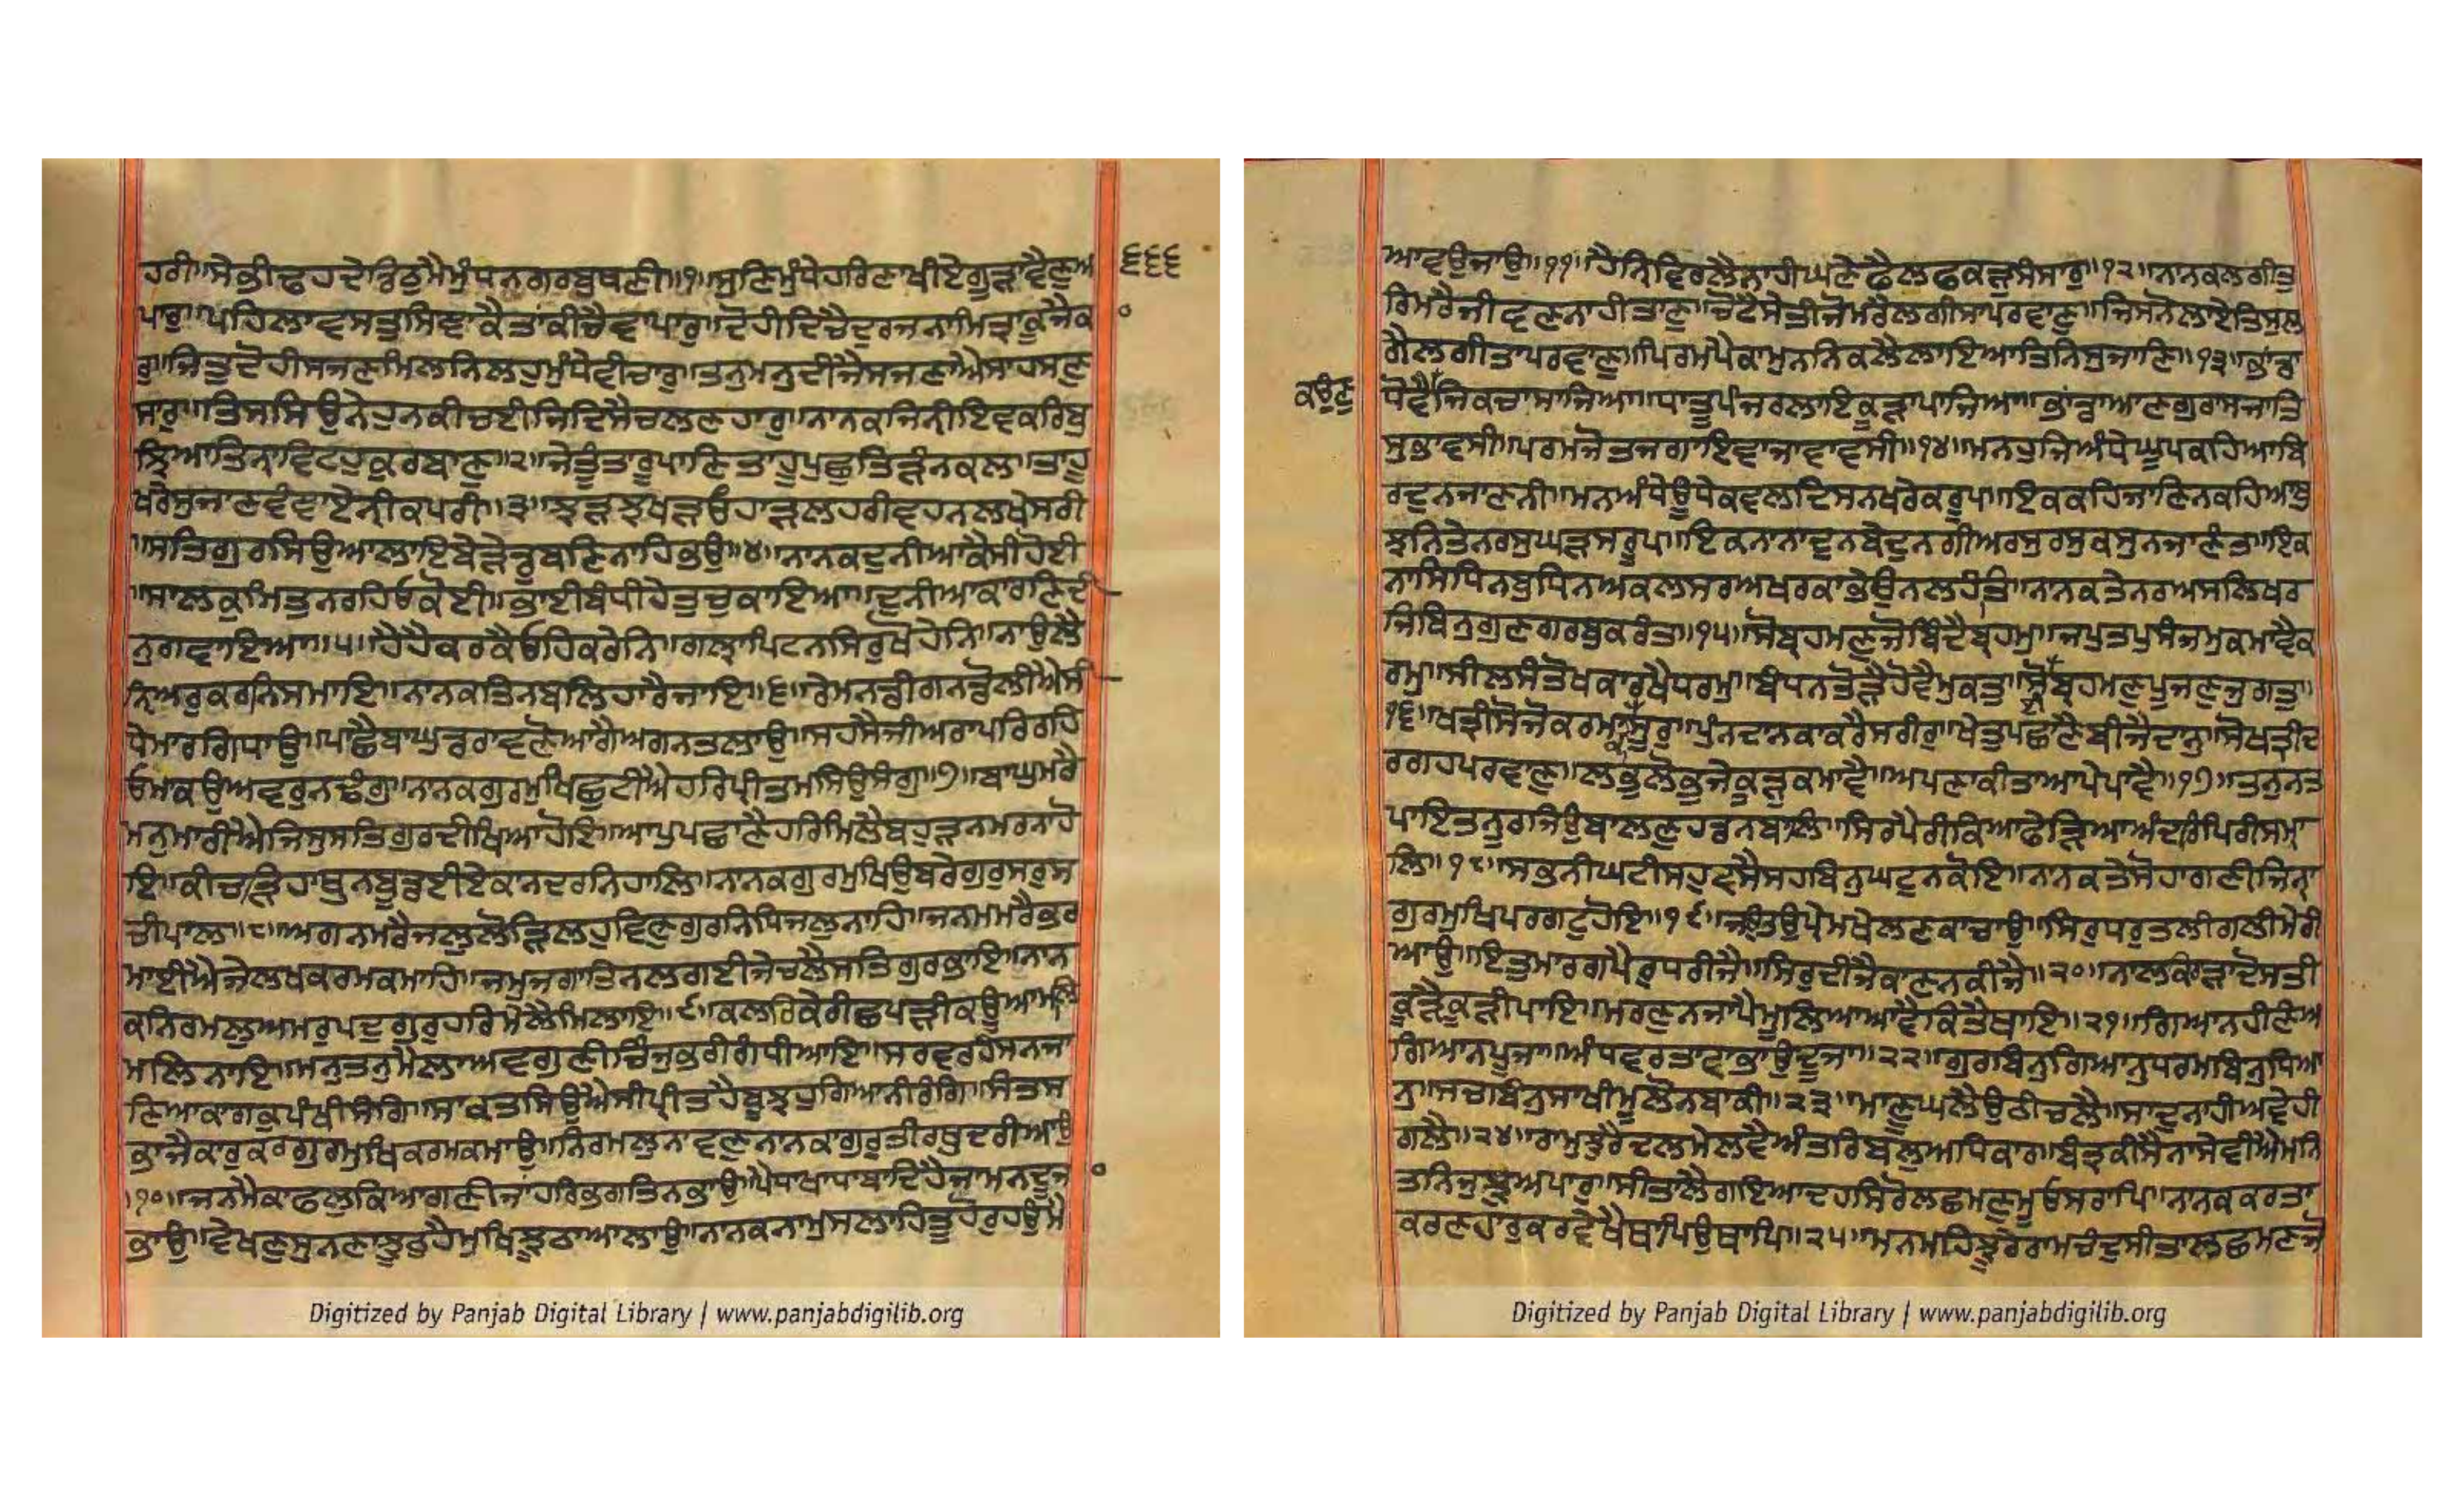 ਹਰੀ॥ਸੇਭੀਢਹਦੇਡਿਠੁਮੈਮੁੰਧਨਗਰਬੁਥਣੀ॥੧॥ਸੁਣਿਮੁੰਧੇਹਰਿਣਾਖੀਏਗੂੜਾਵੈਣੁਅ
੬੬੬
ਪਾਰੁ॥ਪਹਿਲਾਵਸਤੁਸਿਞਾਕੈਤਾਂਕੀਚੈਵਾਪਾਰੁ॥ਦੋਹੀਦਿਚੈਦੁਰਜਨਾਮਿਤ੍ਰਾਕੂੰਜੈਕਾ
ਰੁ॥ਜਿਤੁਦੋਹੀਸਜਣਮਿਲਨਿਲਹੁਮੁੰਧੇਵੀਚਾਰੁ॥ਤਨੁਮਨੁਦੀਜੈਸਜਣਾਐਸਾਹਸਣੁ
ਸਾਰੁ॥ਤਿਸਸਿਉਨੇਹੁਨਕੀਚਈਜਿਦਿਸੈਚਲਣਹਾਰੁ॥ਨਾਨਕਜਿਨੀਇਵਕਰਿਬੁ
ਝਿਆਤਿਨਾਵਿਟਹੁਕੁਰਬਾਣੁ॥੨॥ਜੇਤੂੰਤਾਰੂਪਾਣਿਤਾਹੂਪੁਛੁਤਿੜੰਨਕਲ॥ਤਾਹੂ
ਖਰੇਸੁਜਾਣਵੰਞਾਏਨੀਕਪਰੀ॥੩॥ਝੜਝਖੜਓਹਾੜਲਹਰੀਵਹਨਲਖੇਸਰੀ
॥ਸਤਿਗੁਰਸਿਉਆਲਾਇਬੇੜੇਡੁਬਣਿਨਾਹਿਭਉ॥੪॥ਨਾਨਕਦੁਨੀਆਕੈਸੀਹੋਈ
॥ਸਾਲਕੁਮਿਤੁਨਰਹਿਓਕੋਈ॥ਭਾਈਬੰਧੀਹੇਤੁਚੁਕਾਇਆ॥ਦੁਨੀਆਕਾਰਣਿਦੀ
ਨੁਗਵਾਇਆ॥੫॥ਹੈਹੈਕਰਕੈਓਹਿਕਰੇਨਿ॥ਗਲਾਪਿਟਨਸਿਰੁਖੋਹੇਨਿ॥ਨਾਉਲੈ
ਨਿਅਰੁਕਰਨਿਸਮਾਇ॥ਨਾਨਕਤਿਨਬਲਿਹਾਰੈਜਾਇ॥੬॥ਰੇਮਨਡੀਗਨਡੋਲੀਐਸੀ
ਧੇਮਾਰਗਿਧਾਉ॥ਪਾਛੈਬਾਘੁਡਰਾਵਣੋਆਗੈਅਗਨਤਲਾਉ॥ਸਹਸੈਜੀਅਰਾਪਰਿਰਹਿ
ਓਮਾਕਉਅਵਰੁਨਢੰਗੁ॥ਨਾਨਕਗੁਰਮੁਖਿਛੁਟੀਐਹਰਿਪ੍ਰੀਤਮਸਿਉਸੰਗੁ॥੭॥ਬਾਘੁਮਰੈ
ਮਨੁਮਾਰੀਐਜਿਸੁਸਤਿਗੁਰਦੀਖਿਆਹੋਇ॥ਆਪੁਪਛਾਣੈਹਰਿਮਿਲੈਬਹੁੜਨਮਰਨਾਹੋ
ਇ॥ਕੀਚੜਿਹਾਥੁਨਬੂਡਈਏਕਾਨਦਰਨਿਹਾਲਿ॥ਨਾਨਕਗੁਰਮੁਖਿਉਬਰੇਗੁਰੁਸਰੁਸ
ਚੀਪਾਲ॥੮॥ਅਗਨਮਰੈਜਲੁਲੋੜਿਲਹੁਵਿਣੁਗੁਰਨਿਧਿਜਲੁਨਾਹਿ॥ਜਨਮਮਰੈਭਰ
ਮਾਈਐਜੇਲਖਕਰਮਕਮਾਹਿ॥ਜਮੁਜਾਗਾਤਿਨਲਗਈਜੇਚਲੈਸਤਿਗੁਰਭਾਇ॥ਨਾਨ
ਕਨਿਰਮਲੁਅਮਰੁਪਦੁਗੁਰੁਹਰਿਮੇਲੈਮਿਲਾਇ॥੯॥ਕਲਰਿਕੇਰੀਛਪੜੀਕਊਆਮਲਿ
ਮਲਿਨਾਇ॥ਮਨੁਤਨੁਮੈਲਾਅਵਗੁਣੀਚਿੰਜੁਭਰੀਗੰਧੀਆਇ॥ਸਰਵਰੁਹੰਸਨਜਾ
ਣਿਆਕਾਗਕੁਪੰਖੀਸੰਗਿ॥ਸਾਕਤਸਿਉਐਸੀਪ੍ਰੀਤਹੈਬੂਝਹੁਗਿਆਨੀਰੰਗਿ॥ਸੰਤਸ
ਭਾਜੈਕਾਰੁਕਰਗੁਰਮੁਖਿਕਰਮਕਮਾਉ॥ਨਿਰਮਲੁਨਾਵਣੁਨਾਨਕਾਗੁਰੁਤੀਰਥੁਦਰੀਆਉ
॥੧੦॥ਜਨਮੈਕਾਫਲੁਕਿਆਗਣੀਜਾਂਹਰਿਭਗਤਿਨਭਾਉ॥ਪੈਧਾਖਾਧਾਬਾਦਿਹੈਜਾਂਮਨਦੂਜਾ
ਭਾਉ॥ਵੇਖਣੁਸੁਨਣਾਝੂਠੁਹੈਮੁਖਿਝੂਠਾਆਲਾਉ॥ਨਾਨਕਨਾਮੁਸਲਾਹਿਤੂਹੋਰੁਹਉਮੈ
Digitized by Panjab Digital Library | www.panjabdigilib.org
ਆਵਉਜਾਉ॥੧੧॥ਹੈਨਿਵਿਰਲੈਨਾਹੀਘਣੇਫੈਲਫਕੜੁਸੰਸਾਰੁ॥੧੨॥ਨਾਨਕਲਗੀਤੁ
ਰਿਮਰੈਜੀਵਣਨਾਹੀਤਾਣੁ॥ਚੋਟੈਸੇਤੀਜੋਮਰੈਲਗੀਸਾਪਰਵਾਣੁ॥ਜਿਸਨੋਲਾਏਤਿਸੁਲ
ਗੈਲਗੀਤਾਪਰਵਾਣੁ॥ਪਿਰਮਪੈਕਾਮੁਨਨਿਕਲੈਲਾਇਆਤਿਨਿਸੁਜਾਣਿ॥੧੩॥ਭਾਂਡਾ
ਕਉਣੁ
ਧੋਵੈਜਿਕਚਾਸਾਜਿਆ॥ਧਾਤੂਪੰਜਰਲਾਇਕੂੜਾਪਾਜਿਆ॥ਭਾਂਡਾਆਣਗੁਰਾਸਜਾਤਿ
ਸੁਭਾਵਸੀ॥ਪਰਮਜੋਤਜਗਾਇਵਾਜਾਵਾਵਸੀ॥੧੪॥ਮਨਹੁਜਿਅੰਧੇਘੂਪਕਹਿਆਬਿ
ਰਦੁਨਜਾਣਨੀ॥ਮਨਅੰਧੇਊਂਧੇਕਵਲਦਿਸਨਖਰੇਕਰੂਪ॥ਇਕਕਹਿਜਾਣਿਨਕਹਿਆਬੁ
ਝਨਿਤੇਨਰਸੁਘੜਸਰੂਪ॥ਇਕਨਾਨਾਦੁਨਬੇਦੁਨਗੀਅਰਸੁਰਸੁਕਸੁਨਜਾਣੰਤ॥ਇਕ
ਨਾਸਿਧਿਨਬੁਧਿਨਅਕਲਸਰਅਖਰਕਾਭੇਉਨਲਹੰਤਿ॥ਨਾਨਕਤੇਨਰਅਸਲਿਖਰ
ਜਿਬਿਨੁਗੁਣਗਰਬੁਕਰੰਤ॥੧੫॥ਸੋਬ੍ਰਹਮਣੁਜੋਬਿੰਦੈਬ੍ਰਹਮੁ॥ਜਪੁਤਪੁਸੰਜਮੁਕਮਾਵੈਕ
ਰਮੁ॥ਸੀਲਸੰਤੋਖਕਾਰਖੈਧਰਮੁ॥ਬੰਧਨਤੋੜੈਹੋਵੈਮੁਕਤੁ॥ਸੋਬ੍ਰਹਮਣੁਪੂਜਣੁਜੁਗਤੁ॥
੧੬॥ਖਤ੍ਰੀਸੋਜੋਕਰਮਾਸੂਰੁ॥ਪੁੰਨਦਾਨਕਾਕਰੈਸਰੀਰੁ॥ਖੇਤੁਪਛਾਣੈਬੀਜੈਦਾਨੁ॥ਸੋਖਤ੍ਰੀਦ
ਰਗਹਪਰਵਾਣੁ॥ਲਬੁਲੋਭੁਜੇਕੂੜੁਕਮਾਵੈ॥ਅਪਣਾਕੀਤਾਆਪੇਪਾਵੈ॥੧੭॥ਤਨੁਨਤ
ਪਾਇਤਨੂਰਜਿਉਬਾਲਣੁਹਡਨਬਾਲਿ॥ਸਿਰਪੈਰੀਕਿਆਫੇੜਿਆਅੰਦਰਿਪਿਰੀਸਮਾ
ਲਿ॥੧੮॥ਸਭਨੀਘਟੀਸਹੁਵਸੈਸਹਬਿਨੁਘਟੁਨਕੋਇ॥ਨਾਨਕਤੇਸੋਹਾਗਣੀਜਿਨਾ
ਗੁਰਮੁਖਿਪਰਗਟੁਹੋਇ॥੧੯॥ਜਉਤਉਪ੍ਰੇਮਖੇਲਣਕਾਚਾਉ॥ਸਿਰੁਧਰੁਤਲੀਗਲੀਮੇਰੀ
ਆਉ॥ਇਤੁਮਾਰਗਪੈਰੁਧਰੀਜੈ॥ਸਿਰੁਦੀਜੈਕਾਣਨਕੀਜੈ॥੨੦॥ਨਾਲਕਿਰਾੜਾਦੋਸਤੀ
ਕੂੜੈਕੂੜੀਪਾਇ॥ਮਰਣੁਨਜਾਪੈਮੂਲਿਆਆਵੈਕਿਤੈਥਾਇ॥੨੧॥ਗਿਆਨਹੀਣਿਅ
ਗਿਆਨਪੂਜਾ॥ਅੰਧਵਰਤਾਵਾਭਾਉਦੂਜਾ॥੨੨॥ਗੁਰਬਿਨੁਗਿਆਨੁਧਰਮਬਿਨੁਧਿਆ
ਨੁ॥ਸਚਬਿਨੁਸਾਖੀਮੂਲੋਨਬਾਕੀ॥੨੩॥ਮਾਣੂਘਲੈਉਠੀਚਲੈ॥ਸਾਦੁਨਾਹੀਅਵੇਹੀ
ਗਲੈ॥੨੪॥ਰਾਮੁਝੁਰੈਦਲਮੇਲਵੈਅੰਤਰਿਬਲੁਅਧਿਕਾਰ॥ਬੰਤਰਕੀਸੈਨਾਸੇਵੀਐਮਨਿ
ਤਨਿਜੁਝੁਅਪਾਰੁ॥ਸੀਤਾਲੈਗਇਆਦਹਸਿਰੋਲਛਮਣੁਮੂਓਸਰਾਪਿ॥ਨਾਨਕਕਰਤਾ
ਕਰਣਹਾਰੁਕਰਵੇਖੈਥਾਪਿਉਥਾਪਿ॥੨੫॥ਮਨਮਹਿਝੂਰੇਰਾਮਚੰਦੁਸੀਤਾਲਛਮਣਜੋ
Digitized by Panjab Digital Library | www.panjabdigilib.org